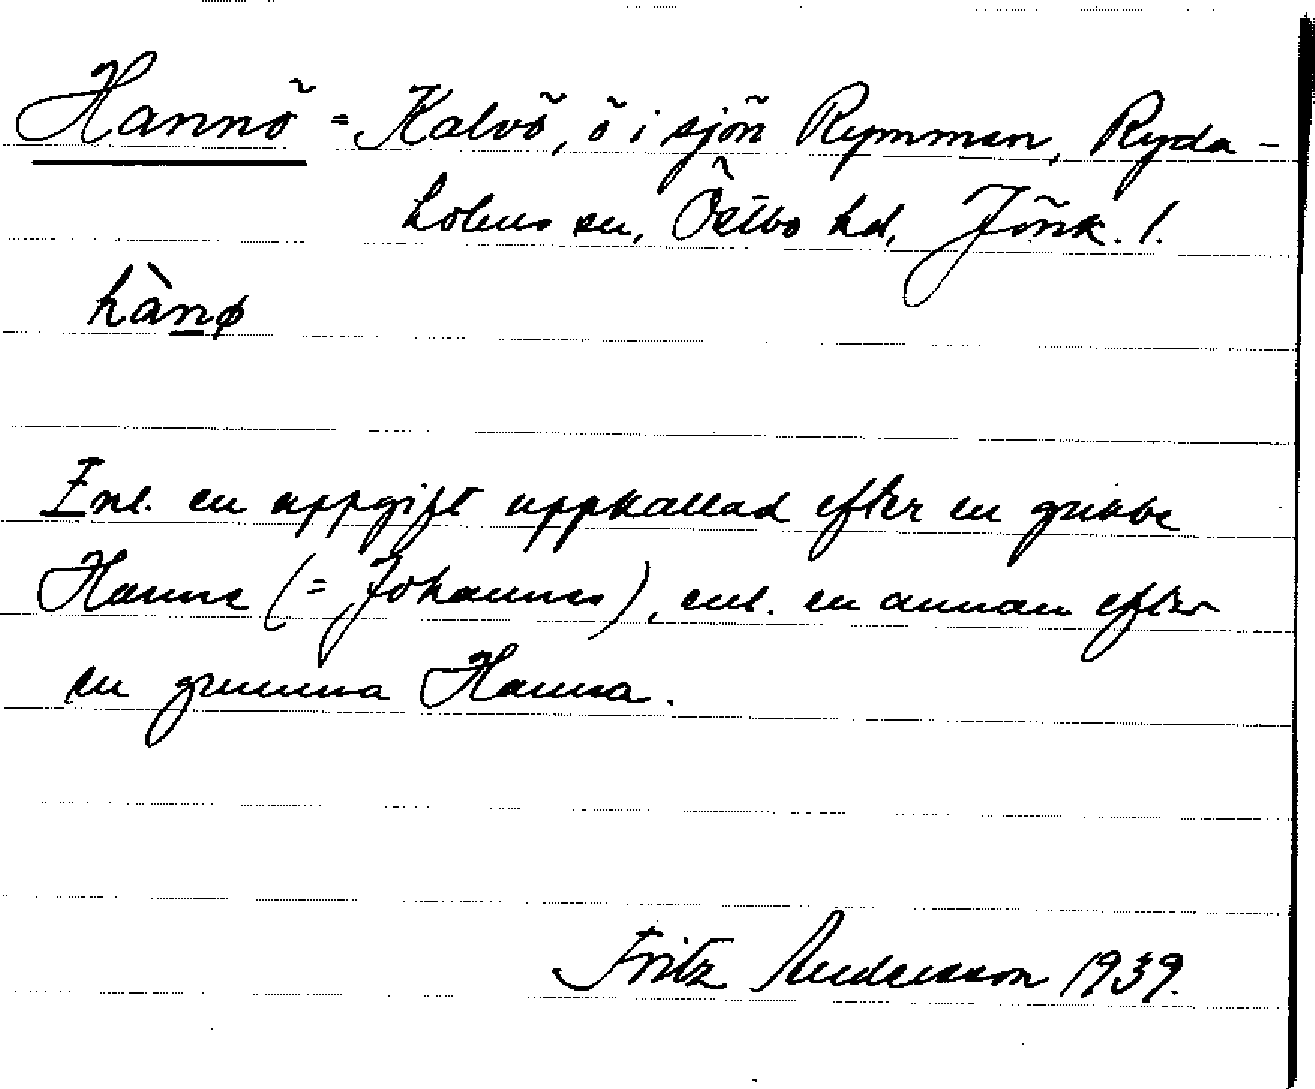 Hannö = Kalvö, ö i sjön Rymmen, Ryda-
holms sn, Östbo hd, Jönk. l.
hànø
Enl. en uppgift uppkallad efter en gubbe
Hanne (= Johannes), enl. en annan efter
en gumma Hanna.
Fritz Andersson 1939.